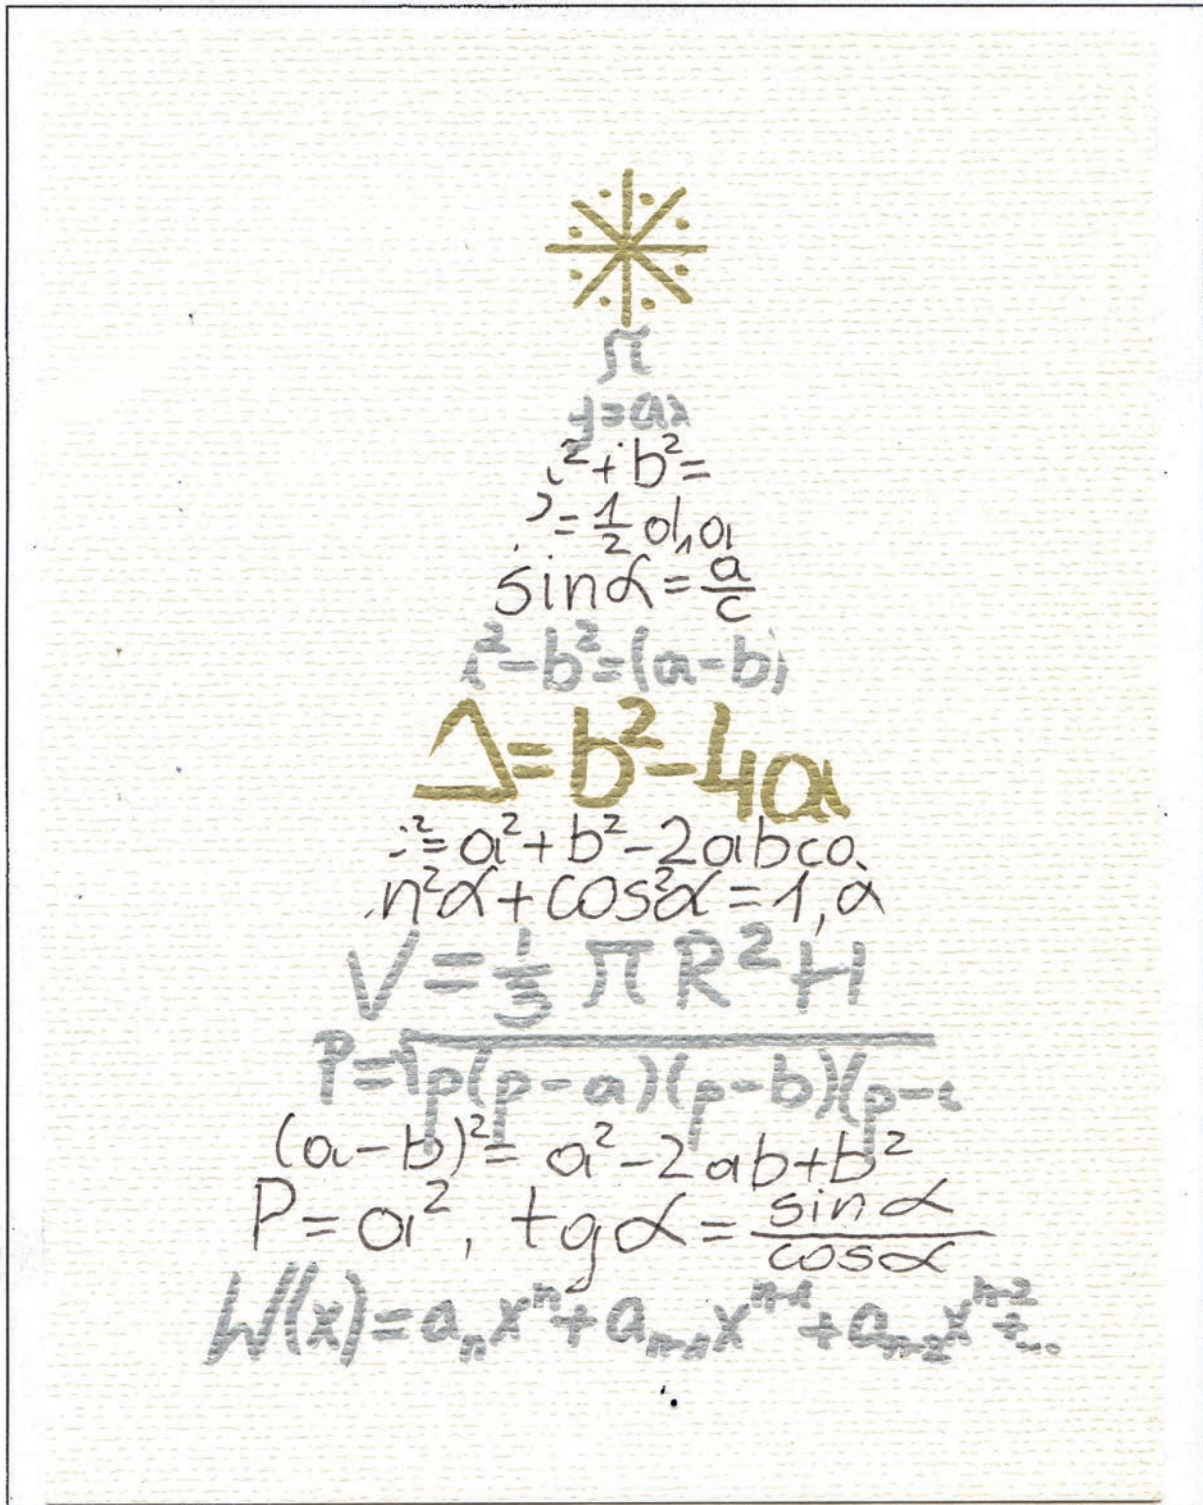 π
y=ax
²+b²=
=½d₁d
sinα=a/c
²-b²=(a-b)
Δ=b²-4a
²=a²+b²-2abco
n²α+cos²α=1, a
V=⅓πR²H
P=√p(p-a)(p-b)(p-c
(a-b)²=a²-2ab+b²
P=a², tgα=sinα/cosα
W(x)=aₙxⁿ+aₙ₋₁xⁿ⁻¹+aₙ₋₂xⁿ⁻²+...